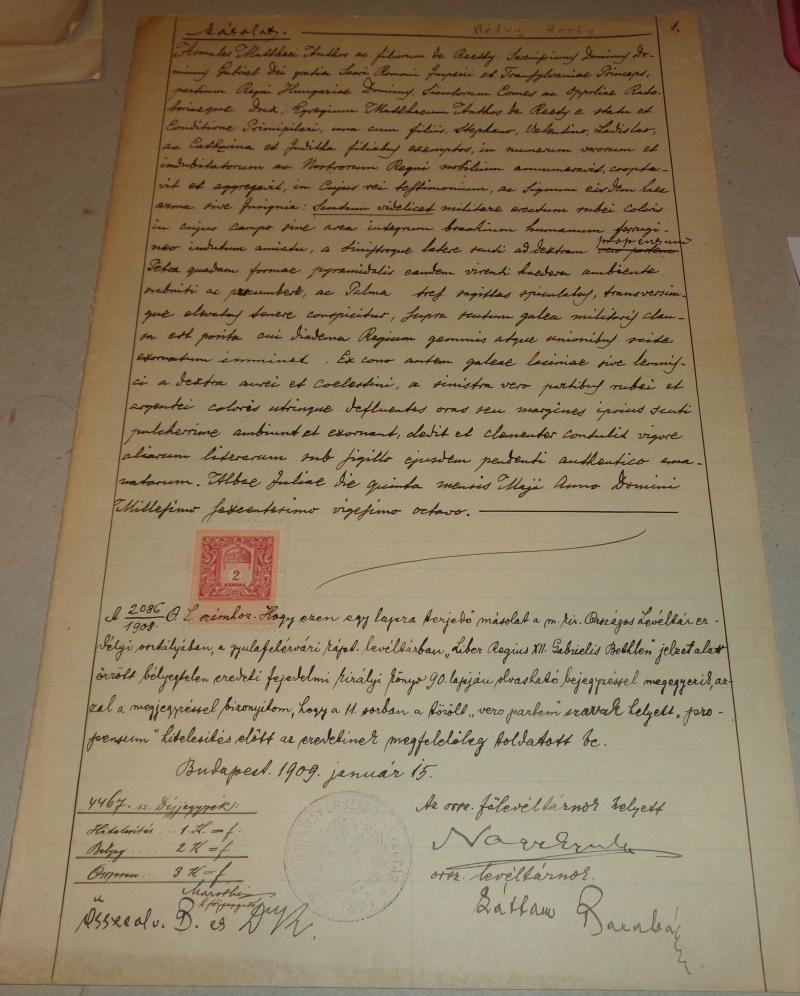 Másolat.
Néhai Réety
1.
Armales Matthaei Anthos ac filiorum de Reety: Serenissimus Dominus Do-
minus Gabriel Dei gratia Sacri Romani Imperii et Transylvaniae Princeps,
partium Regni Hungariae Dominus, Siculorum Comes ac Oppoliae Rati-
boriaeque Dux, Egregium Matthaeum Anthos de Reety e statu et
Conditione Primipilari, una cum filiis, Stephano, Valentino, Ladislao,
ac Catharina et Juditha filiabus exemptos, in numerum verorum et
indubitatorum ac Nostrorum Regni nobilium annumeravit, coopta-
vit et aggregavit, in Cujus rei testimonium, ac Signum eisdem haec
arma sive Insignia: Scutum videlicet militare erectum rubei coloris
in cujus campo sive area integrum brachium humanum ferrugi-
neo indutum amictu, a sinistroque latere scuti ad dextram vero partem propensum
Petra quadam formae pyramidalis eandem virenti haedera ambiente
subniti ac procumbere, ac Palma tres sagittas spiculatas, transversim-
que elevatas tenere conspicitur, supra scutum galea militaris clau-
sa est posita cui diadema Regium gemmis atque unionibus scite
exornatum imminet. Ex cono autem galeae laciniae sive lemnis-
ci a dextra aurei et coelestini, a sinistra vero partibus rubei et
argentei coloris utrinque defluentes oras seu margines ipsius scuti
pulcherrime ambiunt et exornant, dedit et clementer contulit vigore
aliarum literarum sub sigillo ejusdem pendenti authentico ema-
natarum. Albae Juliae die quinta mensis Maji Anno Domini
Millesimo sexcentesimo vigesimo octavo.
2
KORONA
A 2086/1908. O. L. számhoz. Hogy ezen egy lapra terjedő másolat a m. kir. Országos Levéltár er-
délyi osztályában, a gyulafehérvári kápt. levéltárban „Liber Regius XII. Gabrielis Bethlen" jelzet alatt
őrzött bélyegtelen eredeti fejedelmi királyi könyv 90. lapján olvasható bejegyzéssel megegyezik, az-
zal a megjegyzéssel bizonyítom, hogy a 11. sorban a törölt „vero partem" szavak helyett „pro-
pensum" hitelesítés előtt az eredetinek megfelelőleg toldatott be.
Budapest. 1909. január 15.
4467. sz. Díjjegyzék:
Hitelesítés ... 1 K. = f.
Bélyeg ..... 2 K = f.
Összesen ... 3 K = f.
Maróthi
Összeolv. B. és
Az orsz. főlevéltárnok helyett
Nagy Gyula
orsz. levéltárnok.
Láttam